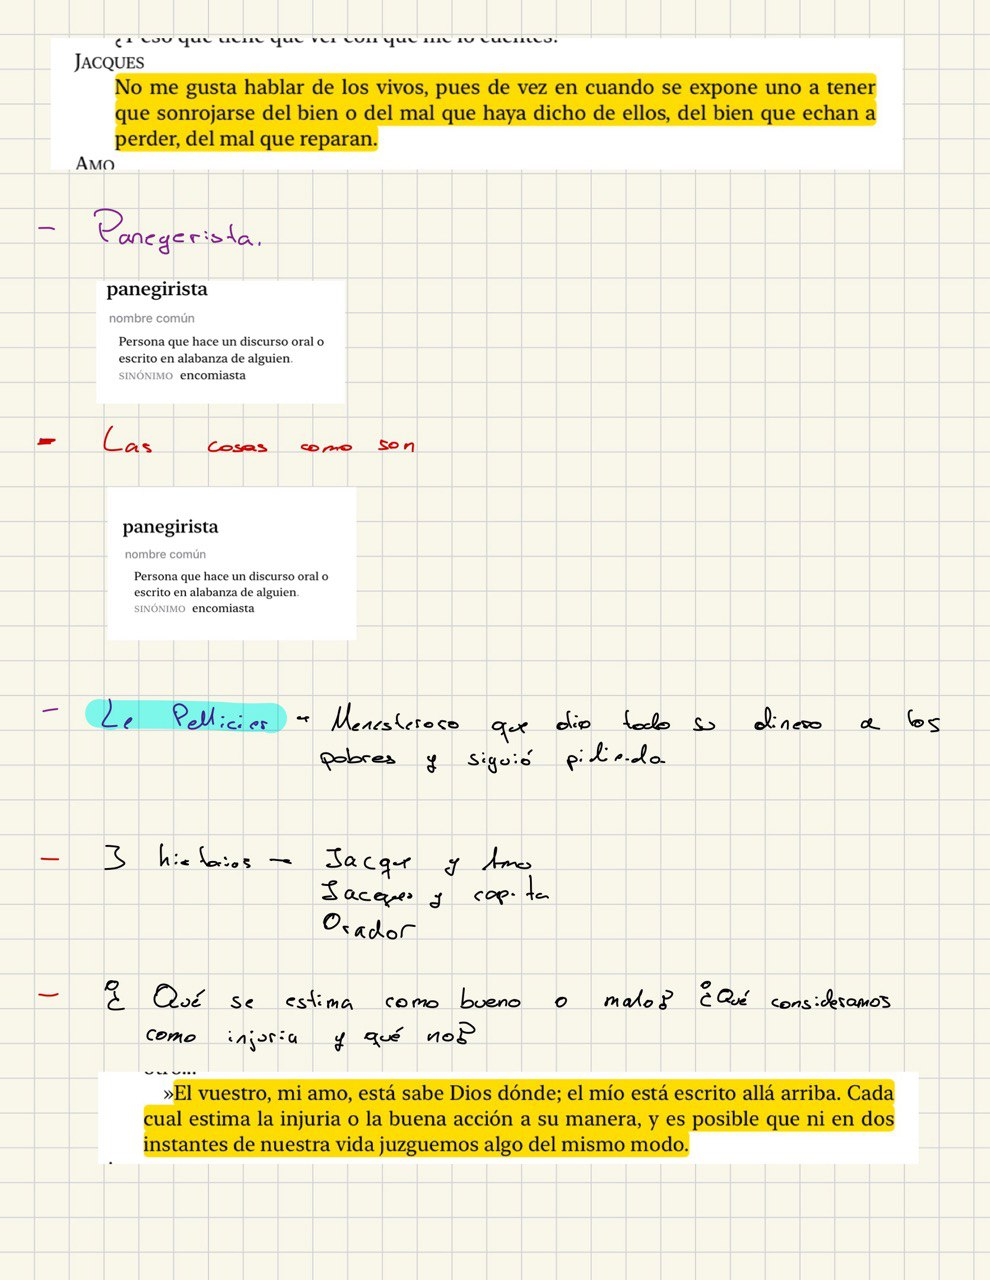 ¿Y eso qué tiene que ver con que me lo cuentes?
JACQUES
No me gusta hablar de los vivos, pues de vez en cuando se expone uno a tener
que sonrojarse del bien o del mal que haya dicho de ellos, del bien que echan a
perder, del mal que reparan.
AMO
- Panegerista.
panegirista
nombre común
Persona que hace un discurso oral o
escrito en alabanza de alguien.
SINÓNIMO encomiasta
- Las cosas como son
panegirista
nombre común
Persona que hace un discurso oral o
escrito en alabanza de alguien.
SINÓNIMO encomiasta
- Le Pellicier - Menesteroso que dio todo su dinero a los
pobres y siguió pidiendo
- 3 historias - Jacque y Amo
Jacques y capita
Orador
- ¿Qué se estima como bueno o malo? ¿Qué consideramos
como injuria y qué no?
otro...
»El vuestro, mi amo, está sabe Dios dónde; el mío está escrito allá arriba. Cada
cual estima la injuria o la buena acción a su manera, y es posible que ni en dos
instantes de nuestra vida juzguemos algo del mismo modo.